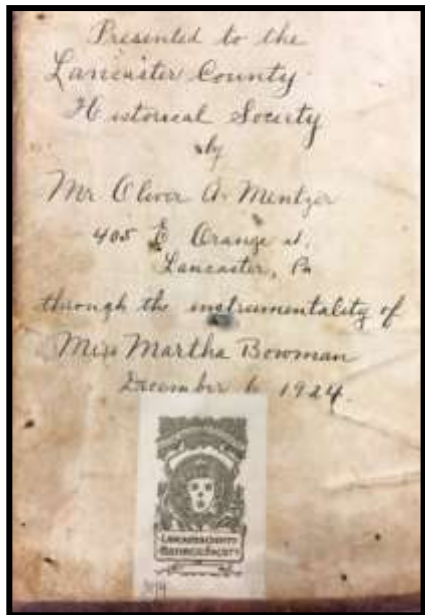 Presented to the
Lancaster County
Historical Society
by
Mr Oliver A. Mentzer
405 E Orange st.
Lancaster, Pa
through the instrumentality of
Miss Martha Bowman
December 6 1924.
LANCASTER COUNTY
HISTORICAL SOCIETY